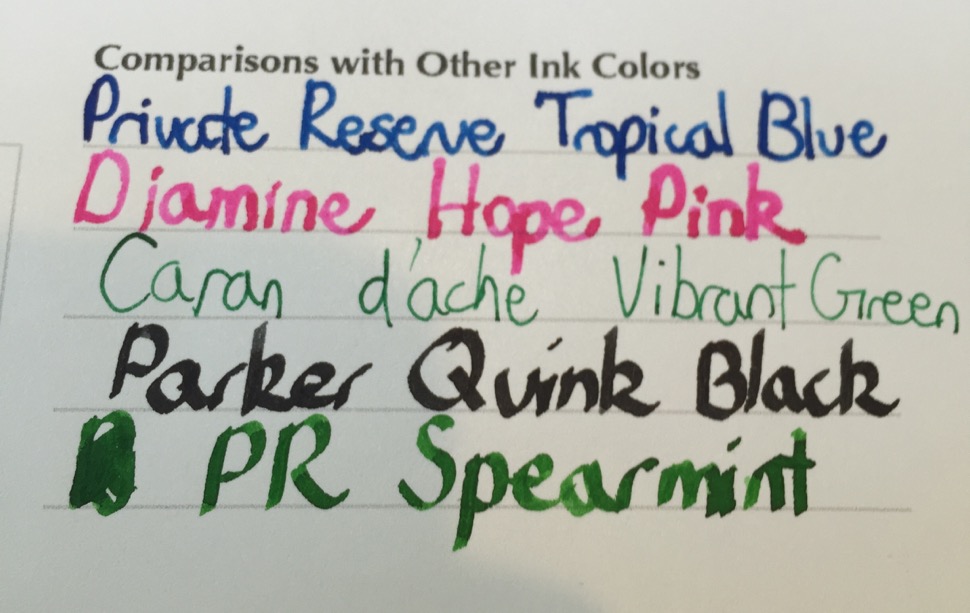 Comparisons with Other Ink Colors
Private Reserve Tropical Blue
Diamine Hope Pink
Caran d'ache Vibrant Green
Parker Quink Black
PR Spearmint